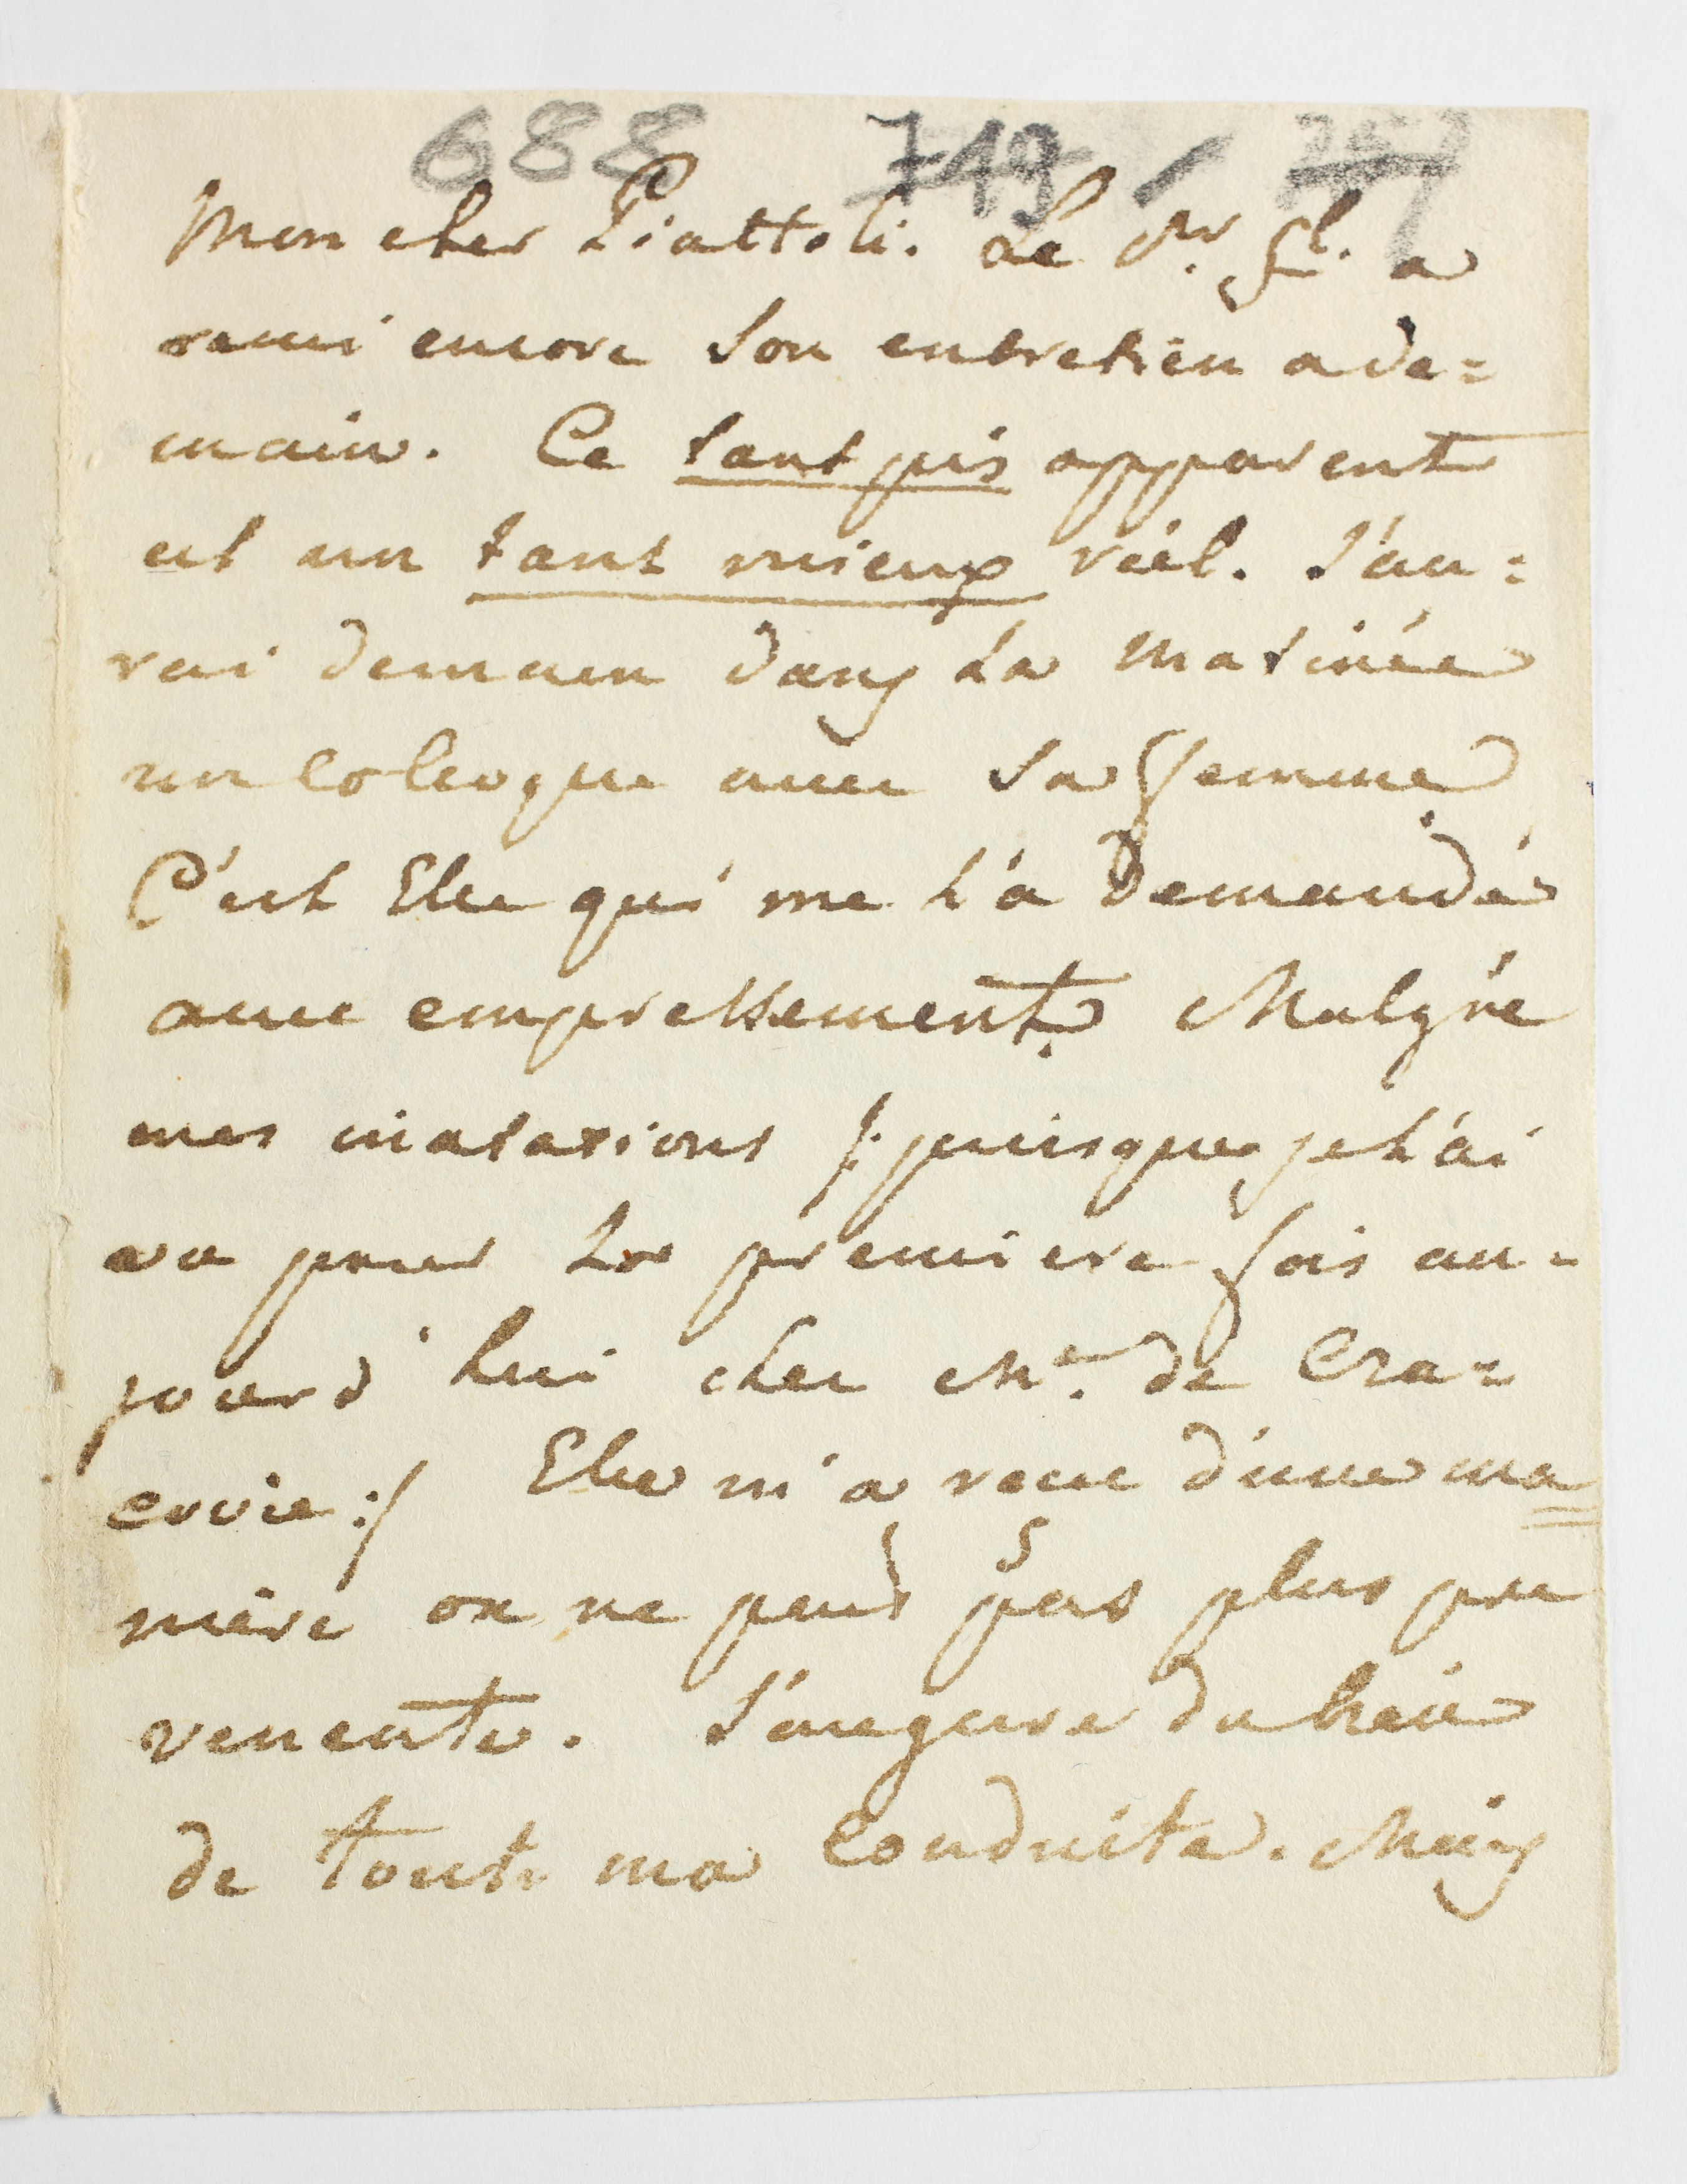 688 719
Mon cher Piattoli. Le Mr. Gl. a
remi encore son entretien a de=
main. Ce tant pis apparent
est un tant mieux réel. J'au=
rai demain dans la matinée
un coloque avec sa femme
C'est Elle qui me l'a demandé
avec empressement. Malgré
mes /: puisque je l'ai
vu pour la premiere fois au=
jourd'hui chez Me. de Cra=
covie :/ Elle m'a recue d'une ma=
niere on ne peut pas plus pre
venente. J'augure du bien
de toute ma Conduite. Mais